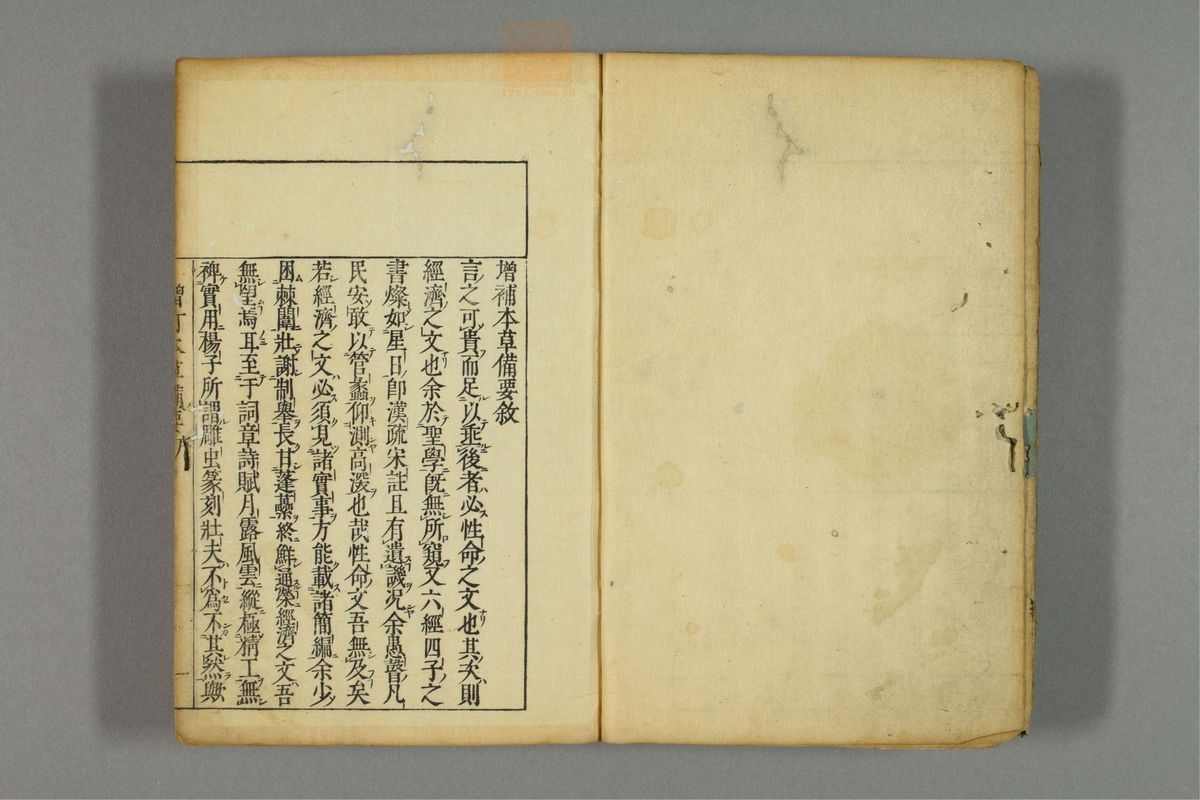 增補本草備要敘
言之可貴而足以垂後者必性命之文也其次則
經濟之文也余於聖學旣無所窺又六經四子之
書燦如星日卽漢疏宋註且有遺譏況余愚瞢凡
民安敢以管蠡仰測高深也哉性命文吾無及矣
若經濟之文必須見諸實事方能載諸簡編余少
困棘闈壯謝制舉長甘蓬藁終鮮通榮經濟之文吾
無望焉耳至于詞章詩賦月露風雲縱極精工無
裨實用楊子所謂雕虫篆刻壯夫不為不其然與